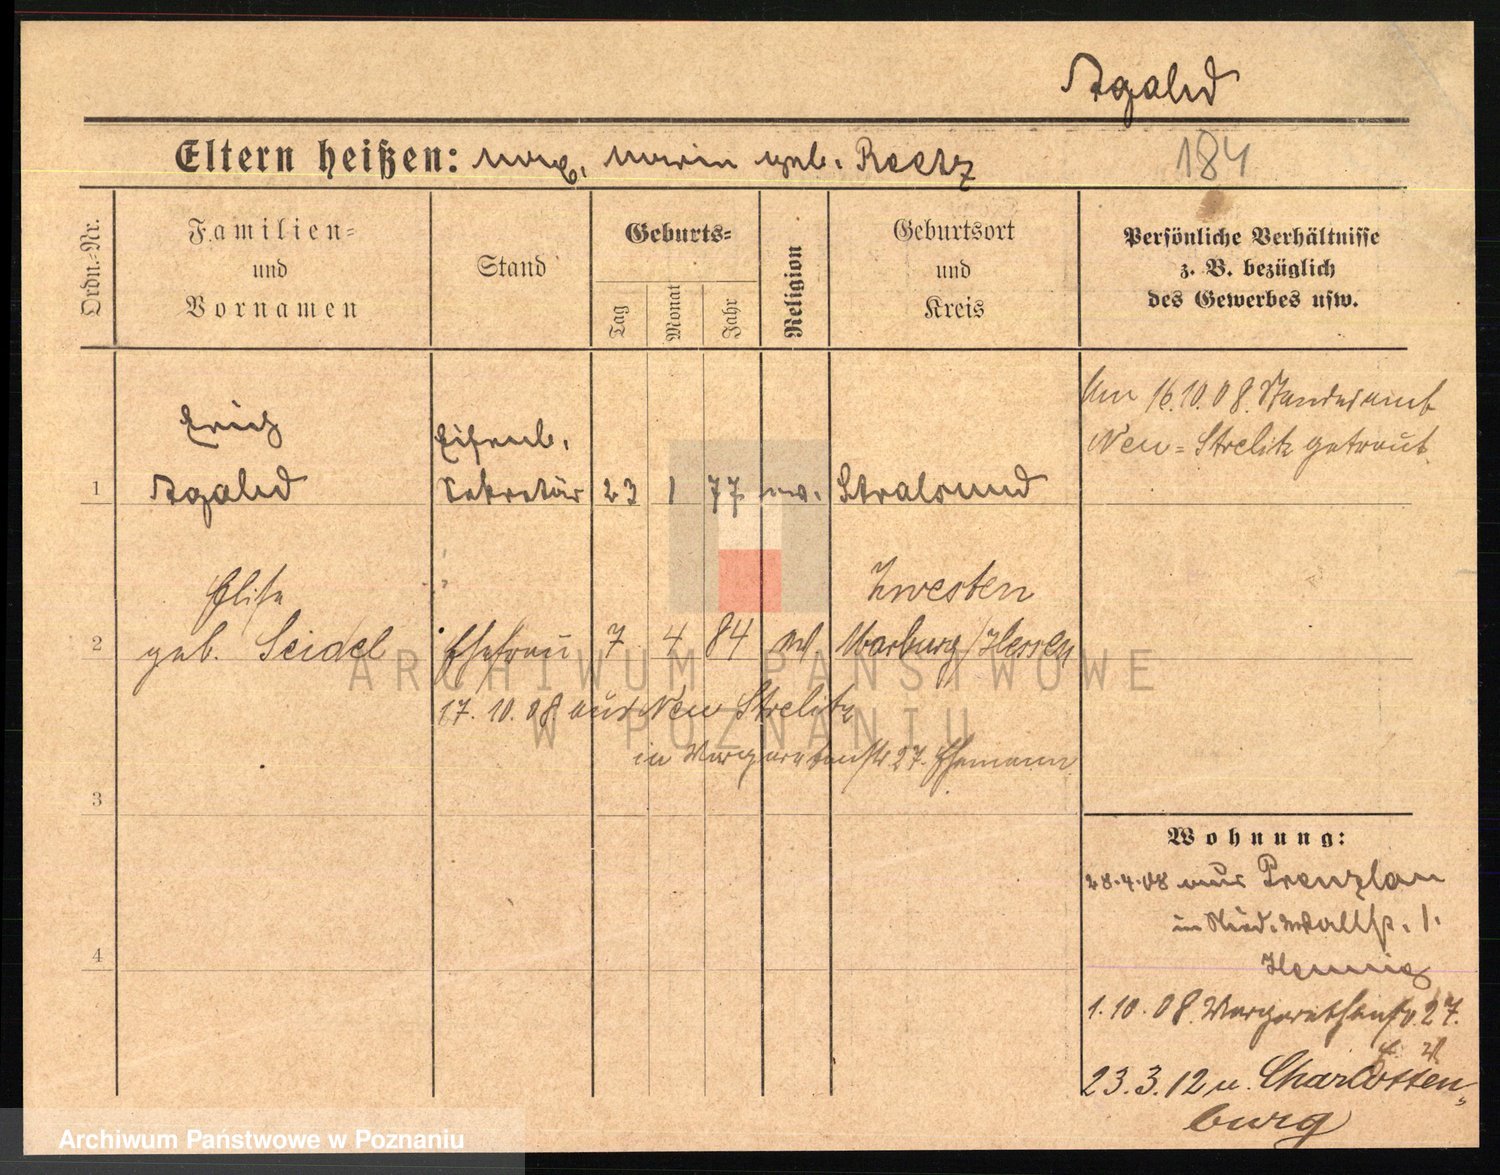 Agahd
Eltern heißen: Aug., Maria geb. Reetz
184
Ordn.=Nr.
Familien=
und
Vornamen
Stand
Geburts=
Tag
Monat
Jahr
Religion
Geburtsort
und
Kreis
Persönliche Verhältnisse
z. B. bezüglich
des Gewerbes usw.
Am 16.10.08. Standesamt
Neu=Strelitz getraut.
Erich
Eisenb.
1 Agahd Sekretär 23 1 77 ev. Stralsund
Elise
Zwesten
2 geb. Seidel Ehefrau 7 4 84 Marburg/Hessen
17.10.08 aus Neu Strelitz
in Margaretenstr 27. Ehemann
3
4
Wohnung:
28.4.08 aus Prenzlau
in Nied. Wallstr. 1.
Hennig
1.10.08. Margarethenstr. 27.
23.3.12 n. Charlotten-
burg
ARCHIWUM PAŃSTWOWE
W POZNANIU
Archiwum Państwowe w Poznaniu